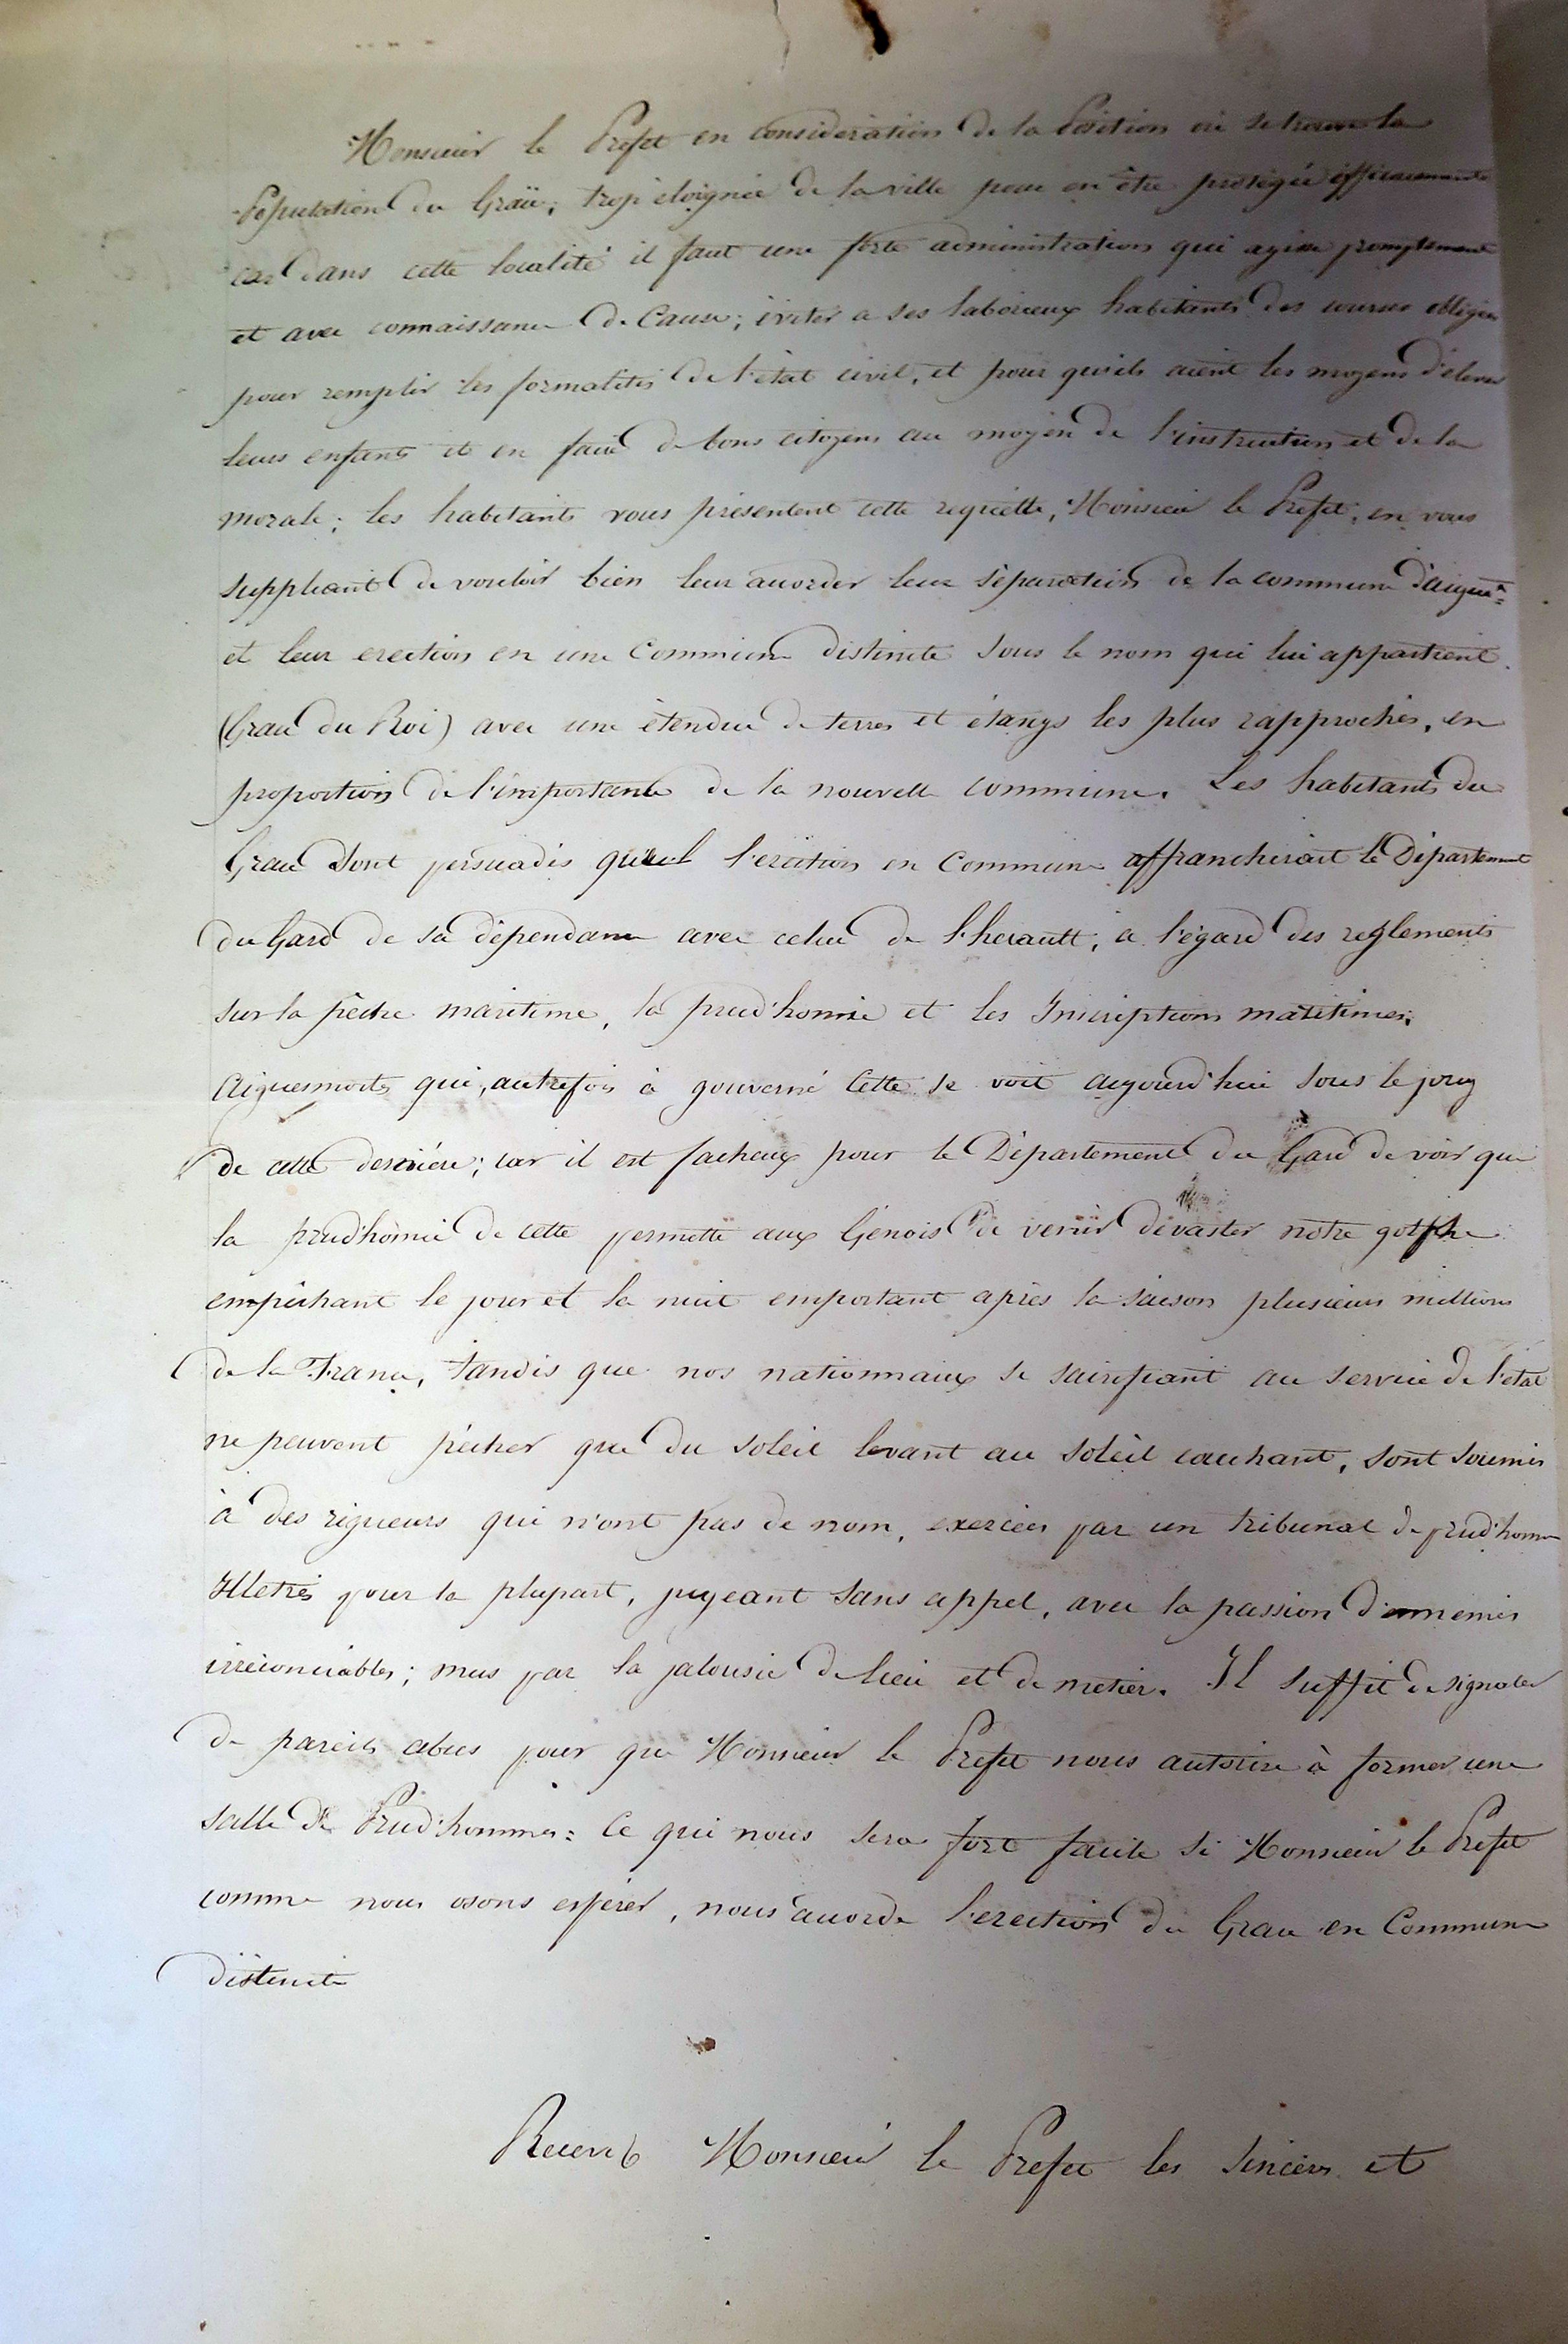 Monsieur le Prefet en considération de la Position où se trouve la
Population du Graü, trop éloignée de la ville pour en être protégée efficacement
car dans cette localité il faut une forte administration qui agisse promptement
et avec connaissance de Cause; éviter a ses laborieux habitants des courses obligées
pour remplir les formalités de l'état civil, et pour qu'ils aient les moyens d'élever
leurs enfants et en faire de bons citoyens au moyen de l'instruction et de la
morale; les habitants vous présentent cette requette, Monsieur le Prefet, en vous
suppliant de vouloir bien leur accorder leur séparation de la commune d'aigues=
et leur erection en une Commune distincte sous le nom qui lui appartient
(Grau du Roi) avec une étendue de terres et étangs les plus rapprochés, en
proportion de l'importance de la nouvelle commune. Les habitants du
Grau sont persuadés que l'erection en Commune affranchirait le Département
du Gard de sa dépendance avec celui de l'herault, a l'égard des reglements
sur la pêche maritime, la prud'homie et les Inscriptions maritimes;
Aiguesmortes qui, autrefois à gouverné Cette se voit aujourd'hui sous le joug
de cette dernière; car il est facheux pour le Département du Gard de voir que
la prud'homie de cette permette aux Génois de venir dévaster notre golphe
empêchant le jour et la nuit emportant après la saison plusieurs millions
de la France, tandis que nos nationnaux se sacrifiant au service de l'etat
ne peuvent pêcher que du soleil levant au soleil couchant, sont soumis
à des rigueurs qui n'ont pas de nom, exercées par un tribunal de prud'homme
Illetrés pour la plupart, jugeant sans appel, avec la passion d'ennemis
irréconciables; mus par la jalousie de lieu et de metier. Il suffit de signaler
de pareils abus pour que Monsieur le Prefet nous autorise à former une
salle de Prud'hommes: ce qui nous sera fort facile si Monsieur le Prefet
comme nous osons espérer, nous accorde l'erection du Grau en Commune
distincte
Recevez Monsieur le Prefet les sincères et